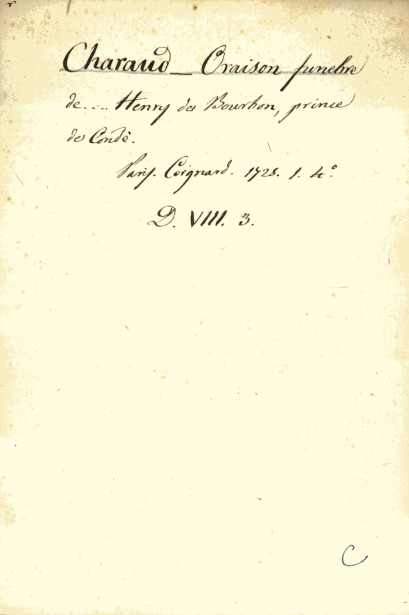 Charaud _ Oraison funebre
de .... Henry de Bourbon, prince
de Condé.
Paris. Coignard. 1728. 1. 4°.
D. VIII. 3.
C